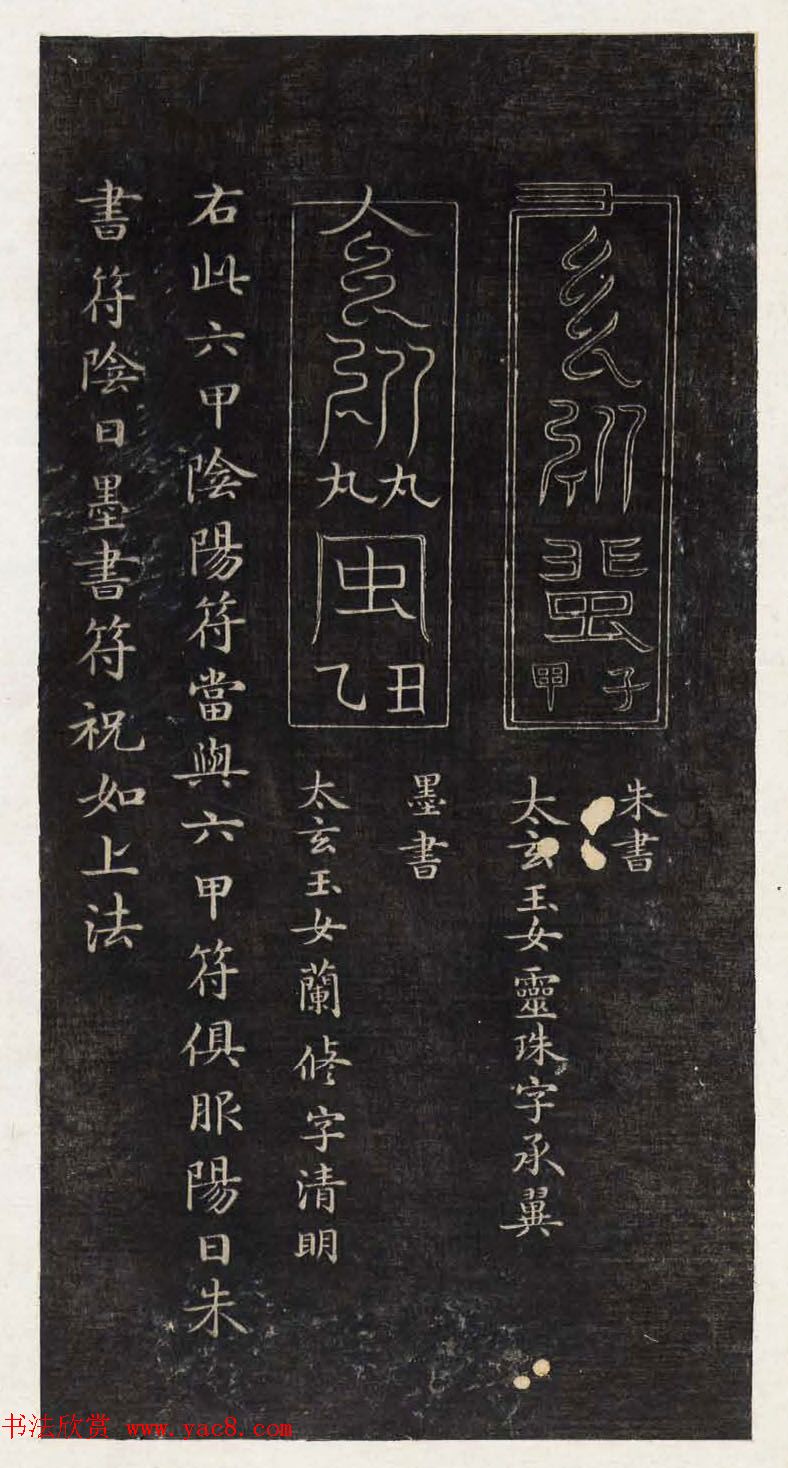 子甲
朱書
太玄玉女靈珠字承翼
丑乙
墨書
太玄玉女蘭修字清明
右此六甲陰陽符當與六甲符俱服陽日朱
書符陰日墨書符祝如上法
书法欣赏 www.yac8.com